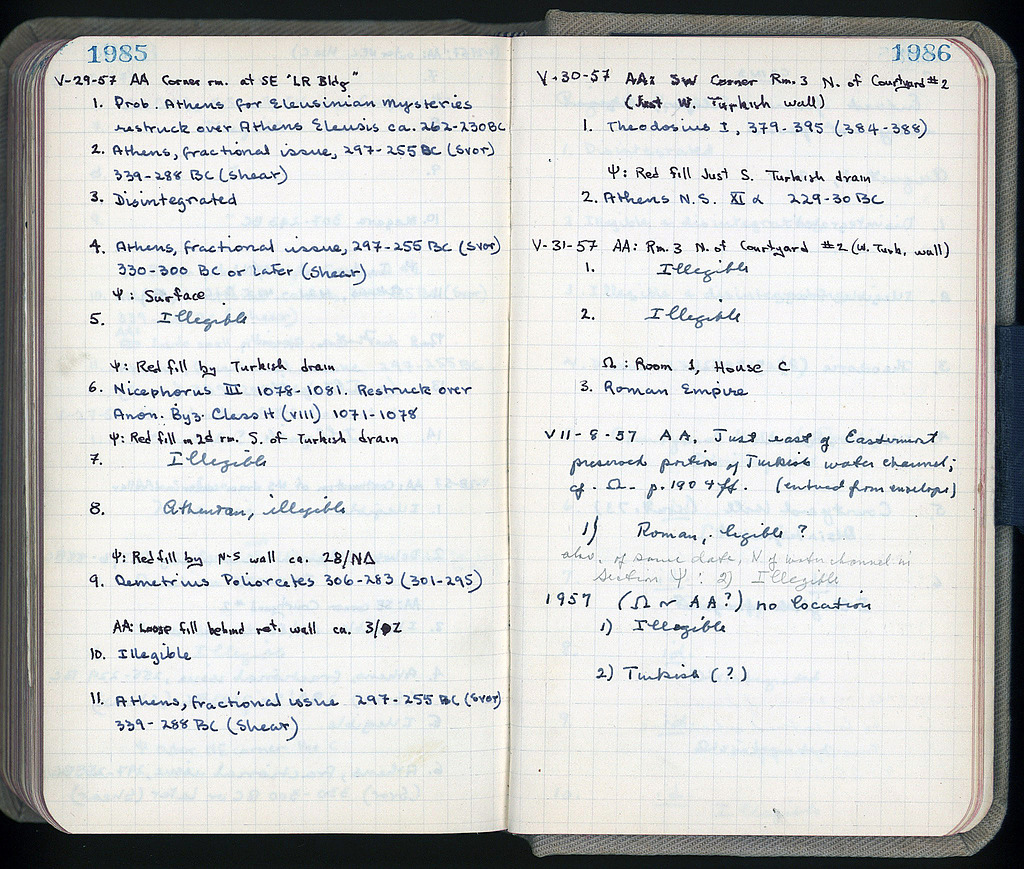 1985
V-29-57 AA Corner rm. at SE "LR Bldg"
1. Prob. Athens for Eleusinian Mysteries
restruck over Athens Eleusis ca. 262-230BC
2. Athens, fractional issue, 297-255 BC (Svor)
339-288 BC (Shear)
3. Disintegrated
4. Athens, fractional issue, 297-255 BC (Svor)
330-300 BC or later (Shear)
Ψ: Surface
5. Illegible
Ψ: Red fill by Turkish drain
6. Nicephorus III 1078-1081. Restruck over
Anon. Byz. Class H (VIII) 1071-1078
Ψ: Red fill in 2d rm. S. of Turkish drain
7. Illegible
8. Athenian, illegible
Ψ: Red fill by N-S wall ca. 28/ΝΔ
9. Demetrius Poliorcetes 306-283 (301-295)
AA: Loose fill behind ret. wall ca. 3/
10. Illegible
11. Athens, fractional issue 297-255 BC (Svor)
339-288 BC (Shear)
1986
V-30-57 AA: SW Corner Rm. 3 N. of Courtyard #2
(Just W. Turkish wall)
1. Theodosius I, 379-395 (384-388)
Ψ: Red fill Just S. Turkish drain
2. Athens N.S. XI α 229-30 BC
V-31-57 AA: Rm. 3 N. of Courtyard #2 (W. Turk. wall)
1. Illegible
2. Illegible
Ω: Room 1, House C
3. Roman Empire
VII-8-57 AA, Just east of Easternmost
preserved portion of Turkish water channel;
cf. Ω p. 190 4 ff. (entered from envelope)
1) Roman, legible?
also, of same date, N of water channel in
Section Ψ: 2) Illegible
1957 (Ω or AA?) no location
1) Illegible
2) Turkish (?)